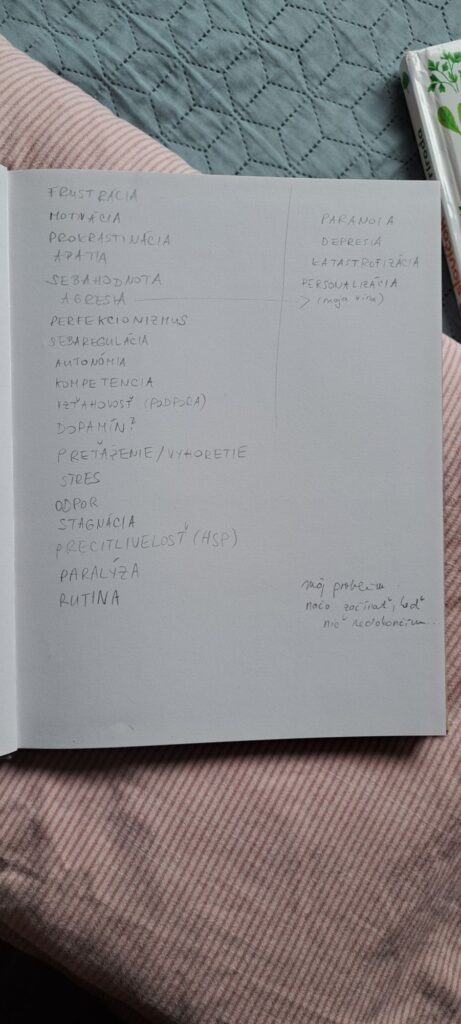 FRUSTRÁCIA
MOTIVÁCIA
PROKRASTINÁCIA
APATIA
SEBAHODNOTA
AGRESIA
PERFEKCIONIZMUS
SEBAREGULÁCIA
AUTONÓMIA
KOMPETENCIA
VZŤAHOVOSŤ (PODPORA)
DOPAMÍN?
PREŤAŽENIE/VYHORETIE
STRES
ODPOR
STAGNÁCIA
PRECITLIVELOSŤ (HSP)
PARALÝZA
RUTINA
PARANOIA
DEPRESIA
KATASTROFIZÁCIA
PERSONALIZÁCIA
(moja vina)
môj problém
načo začínať, keď
nič nedokončím...